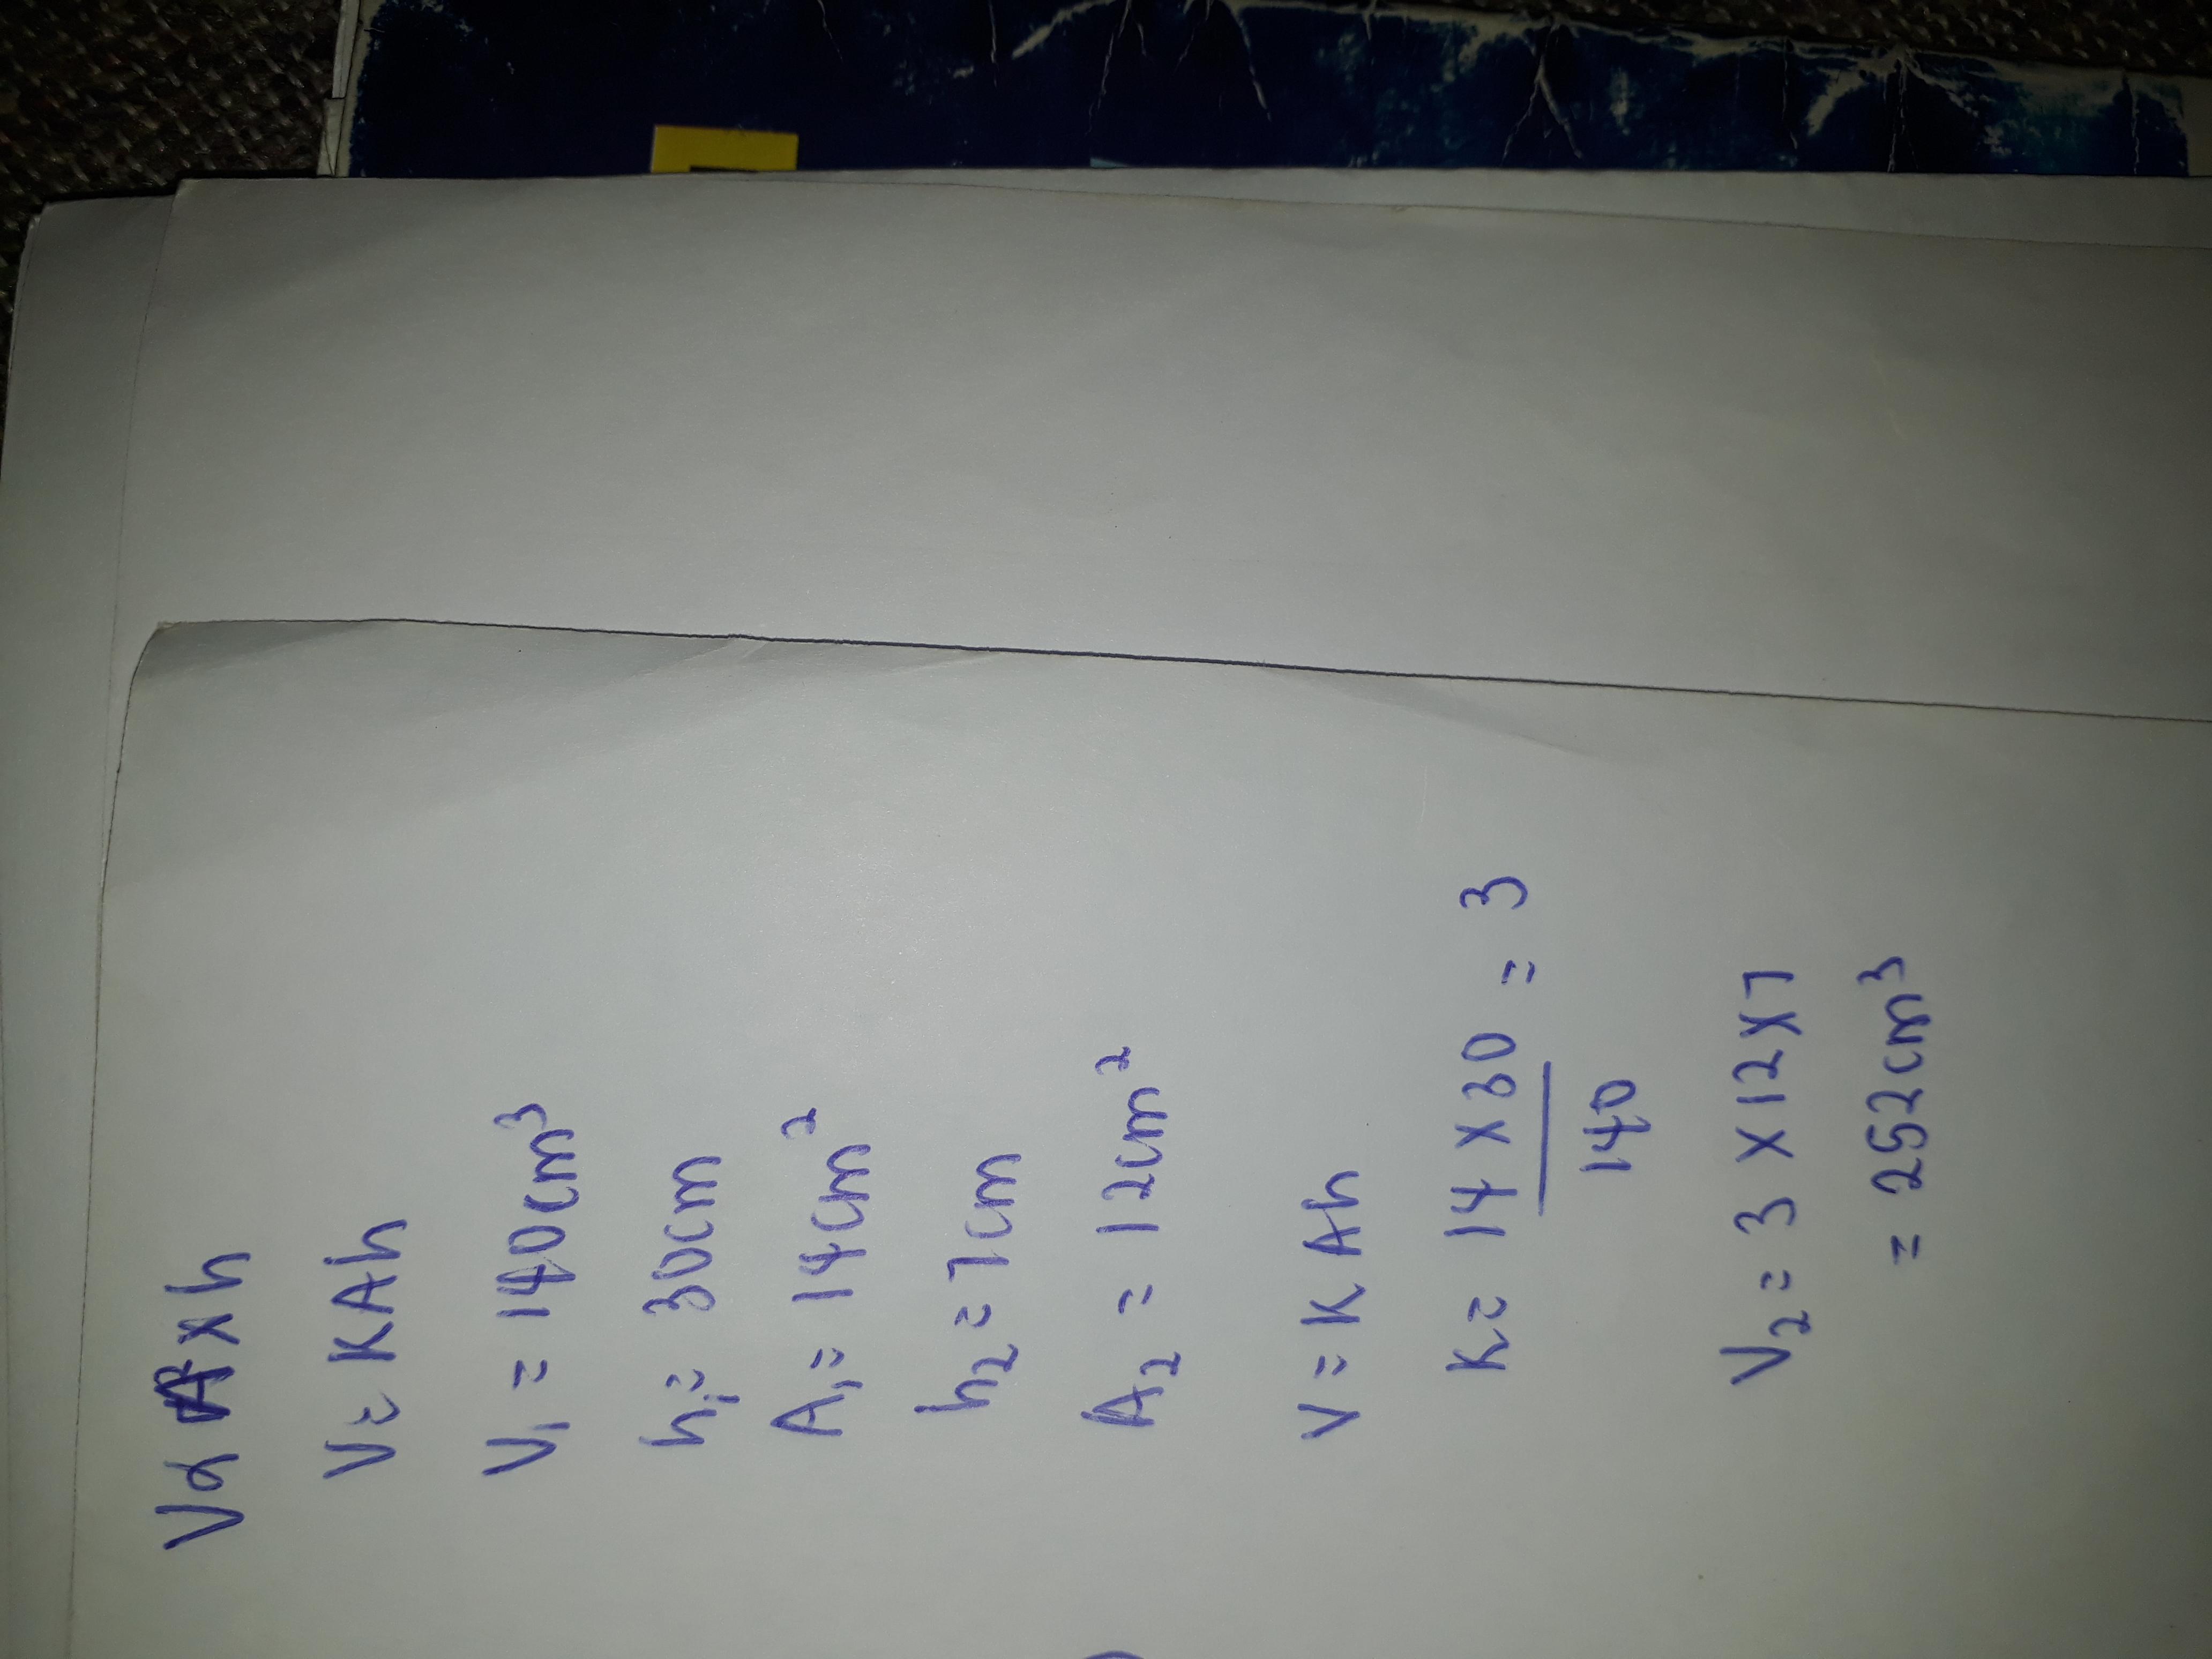 V α A x h
V = KAh
V₁ = 140cm³
h₁ = 30cm
A₁ = 14cm²
h₂ = 7cm
A₂ = 12cm²
V = K Ah
K = 14 x 30 / 140 = 3
V₂ = 3 x 12 x 7
= 252cm³